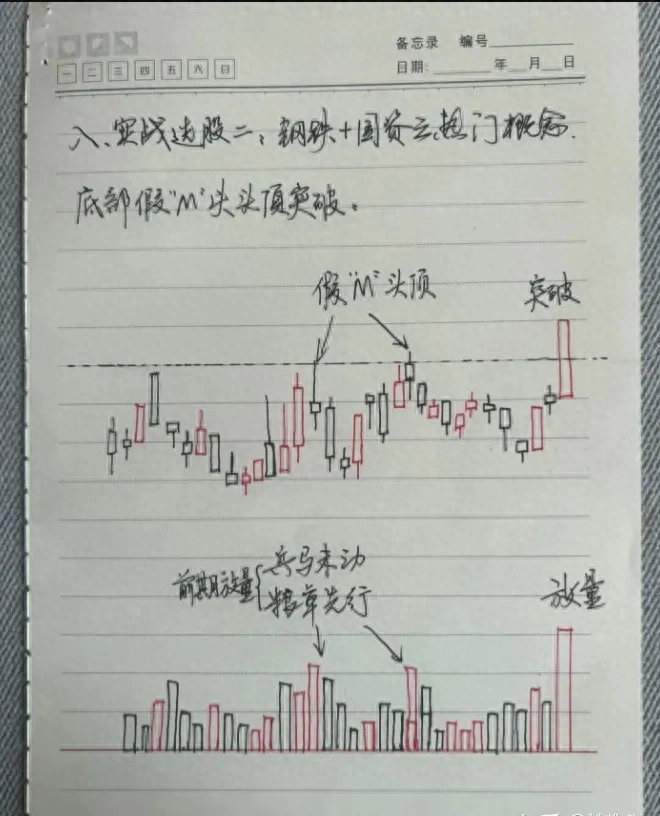 备忘录 编号
一 二 三 四 五 六 日
日期: 年 月 日
八、实战选股二:钢铁+国资云热门概念.
底部假"M"头头顶突破。
假"M"头顶
突破
前期放量{兵马未动
粮草先行
放量